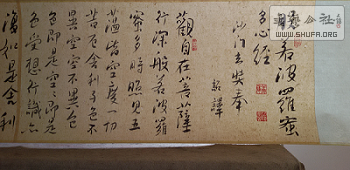 公社
WWW.SHUFA.ORG
般若波羅蜜
多心經
沙門玄奘奉
詔譯
觀自在菩薩
行深般若波羅
蜜多時照見五
蘊皆空度一切
苦厄舍利子色不
異空空不異色
色即是空空即是
色受想行識亦
復如是舍利